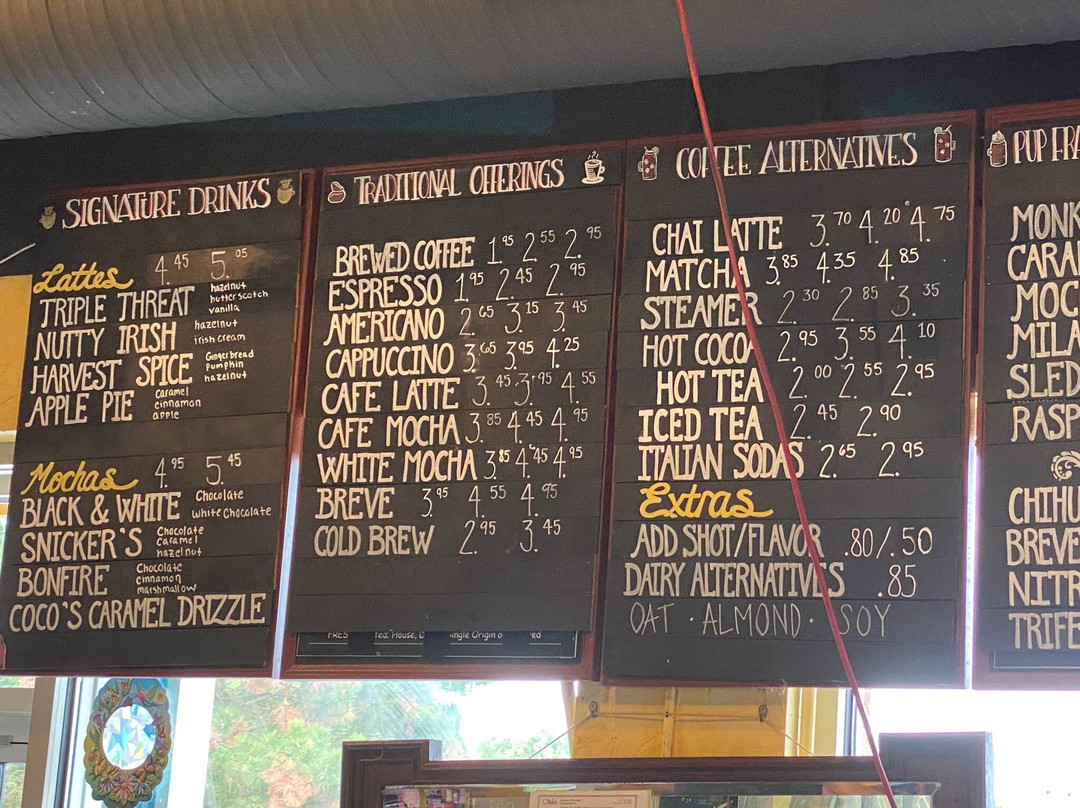 SIGNATURE DRINKS
Lattes 4.45 5.05
TRIPLE THREAT hazelnut
butterscotch
vanilla
NUTTY IRISH hazelnut
irish cream
HARVEST SPICE Gingerbread
pumpkin
hazelnut
APPLE PIE caramel
cinnamon
apple
Mochas 4.95 5.45
BLACK & WHITE Chocolate
white Chocolate
SNICKER'S Chocolate
Caramel
hazelnut
BONFIRE Chocolate
cinnamon
marshmallow
COCO'S CARAMEL DRIZZLE
TRADITIONAL OFFERINGS
BREWED COFFEE 1.95 2.55 2.95
ESPRESSO 1.95 2.45 2.95
AMERICANO 2.65 3.15 3.45
CAPPUCCINO 3.65 3.95 4.25
CAFE LATTE 3.45 3.95 4.55
CAFE MOCHA 3.85 4.45 4.95
WHITE MOCHA 3.85 4.45 4.95
BREVE 3.95 4.55 4.95
COLD BREW 2.95 3.45
COFFEE ALTERNATIVES
CHAI LATTE 3.70 4.20 4.75
MATCHA 3.85 4.35 4.85
STEAMER 2.30 2.85 3.35
HOT COCOA 2.95 3.55 4.10
HOT TEA 2.00 2.55 2.95
ICED TEA 2.45 2.90
ITALIAN SODAS 2.65 2.95
Extras
ADD SHOT/FLAVOR .80/.50
DAIRY ALTERNATIVES .85
OAT · ALMOND · SOY
PUP FRA
MONK
CARA
MOC
MILA
SLED
RASP
CHIHU
BREVE
NITR
TRIFE